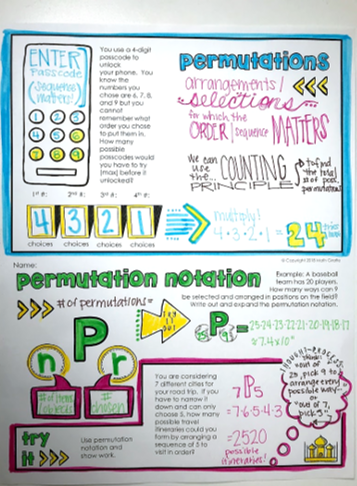 ENTER
Passcode
(sequence
matters!)
1 2 3
4 5 6
7 8 9
You use a 4-digit
passcode to
unlock
your phone. You
know the
numbers you
chose are 6, 7, 8,
and 9 but you
cannot
remember what
order you chose
to put them in.
How many
possible
passcodes would
you have to try
(max) before it
unlocked?
permutations
arrangements/
selections
for which the
ORDER/sequence MATTERS
We can
use
the...
COUNTING
PRINCIPLE
to find
the total
# of poss.
permutations
1st #: 2nd #: 3rd #: 4th #:
4 3 2 1
choices choices choices choices
multiply!
4·3·2·1 = 24
Name:
permutation notation
Example: A baseball
team has 20 players.
How many ways can 9
be selected and arranged in positions on the field?
Write out and expand the permutation notation.
# of permutations =
P
n r
# of items/
objects
# chosen
try
it out
P =
You are considering
7 different cities for
your road trip. If you
have to narrow it
down and can only
choose 5, how many
possible travel
itineraries could you
form by arranging a
sequence of 5 to
visit in order?
7P5
=7·6·5·4·3
=2520
possible
itineraries!
THOUGHT PROCESS:
think:
"out of
25, pick 9 to
arrange every
possible way"
or
"out of 7,
pick 5"
try
it
Use permutation
notation and
show work.